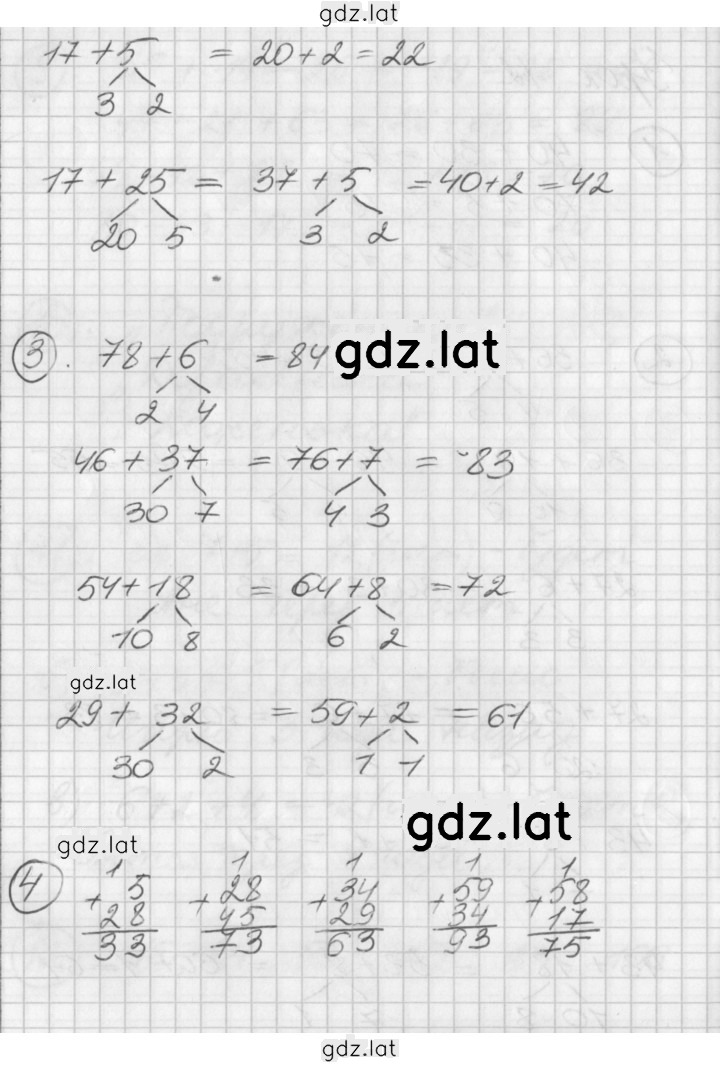 gdz.lat
17 + 5 = 20 + 2 = 22
3 2
17 + 25 = 37 + 5 = 40 + 2 = 42
20 5 3 2
3. 78 + 6 = 84 gdz.lat
2 4
46 + 37 = 76 + 7 = 83
30 7 4 3
54 + 18 = 64 + 8 = 72
10 8 6 2
gdz.lat
29 + 32 = 59 + 2 = 61
30 2 1 1
gdz.lat
gdz.lat
1 1 1 1 1
4 + 5 + 28 + 34 + 59 + 58
28 45 29 34 17
33 73 63 93 75
gdz.lat